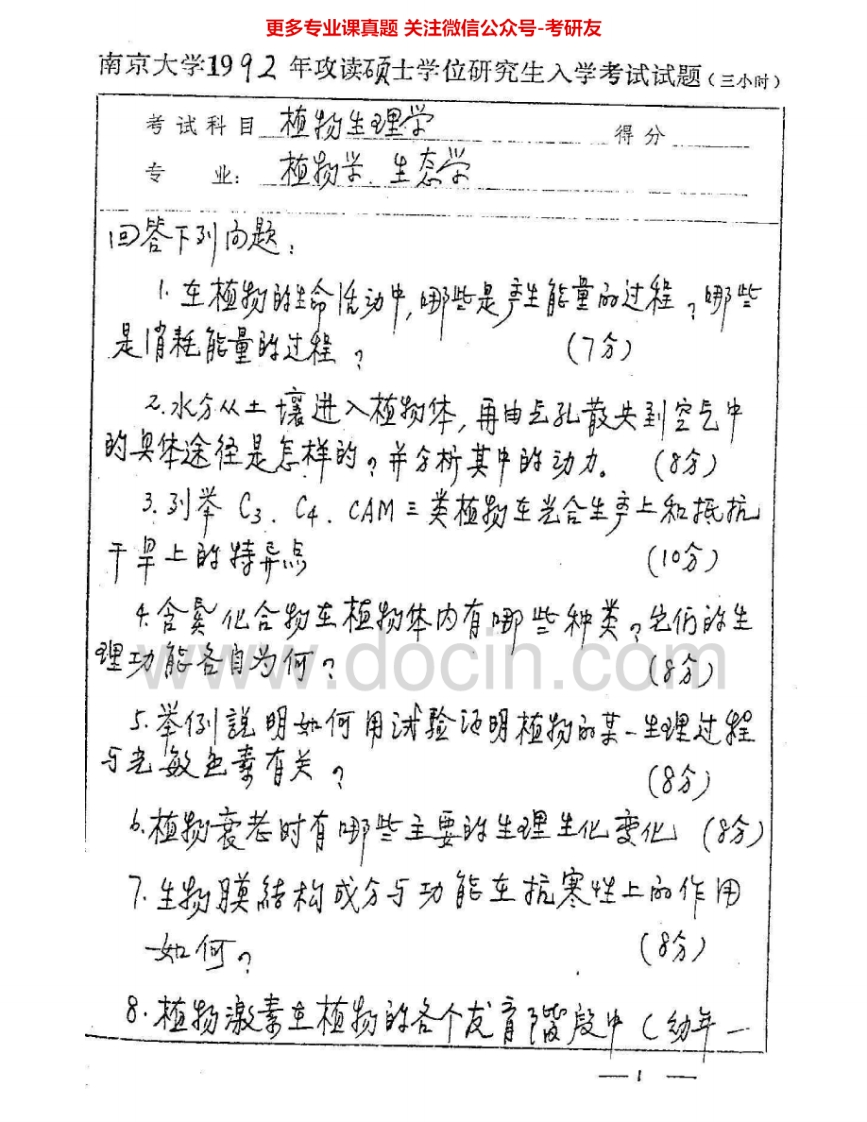 更多专业课真题 关注微信公众号-考研友
南京大学1992年攻读硕士学位研究生入学考试试题(三小时)
考试科目 植物生理学 得分
专 业: 植物学、生态学
回答下列问题:
1. 在植物的生命活动中,哪些是产生能量的过程,哪些
是消耗能量的过程? (7分)
2. 水分从土壤进入植物体,再由气孔散失到空气中
的具体途径是怎样的?并分析其中的动力。 (8分)
3. 列举 C3、C4、CAM三类植物在光合生产上和抵抗
干旱上的特异点 (10分)
4. 含氮化合物在植物体内有哪些种类?它们的生
理功能各自为何? (8分)
www.docin.com
5. 举例説明如何用试验证明植物的某一生理过程
与光敏色素有关? (8分)
6. 植物衰老时有哪些主要的生理生化变化 (8分)
7. 生物膜结构成分与功能在抗寒性上的作用
如何? (8分)
8. 植物激素在植物的各个发育階段中(幼年一
— 1 —